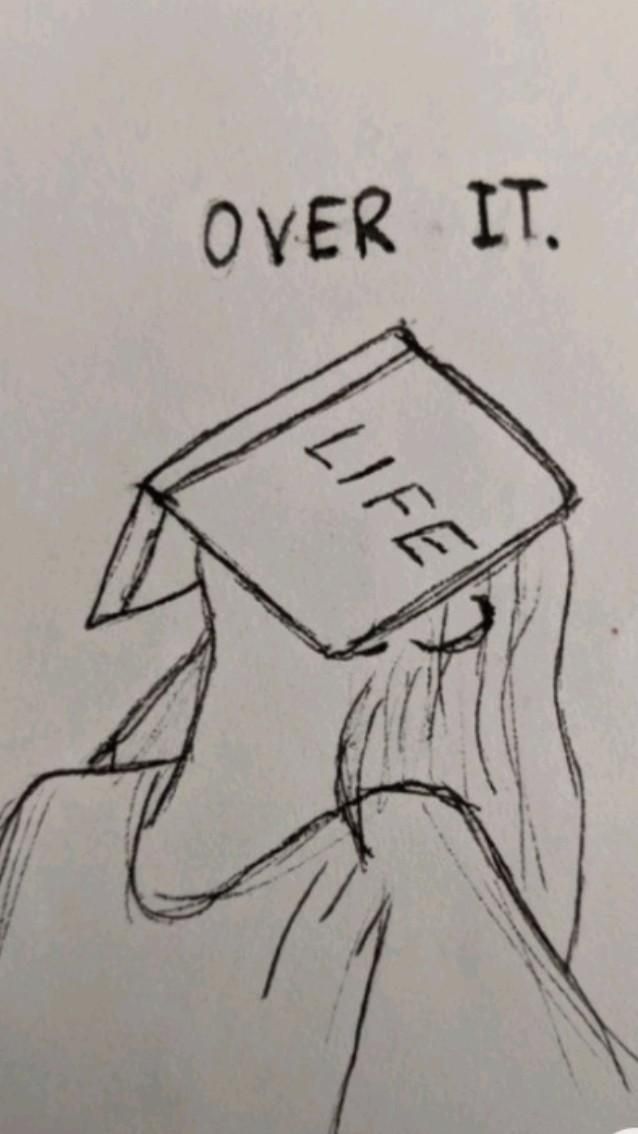 OVER IT.
LIFE